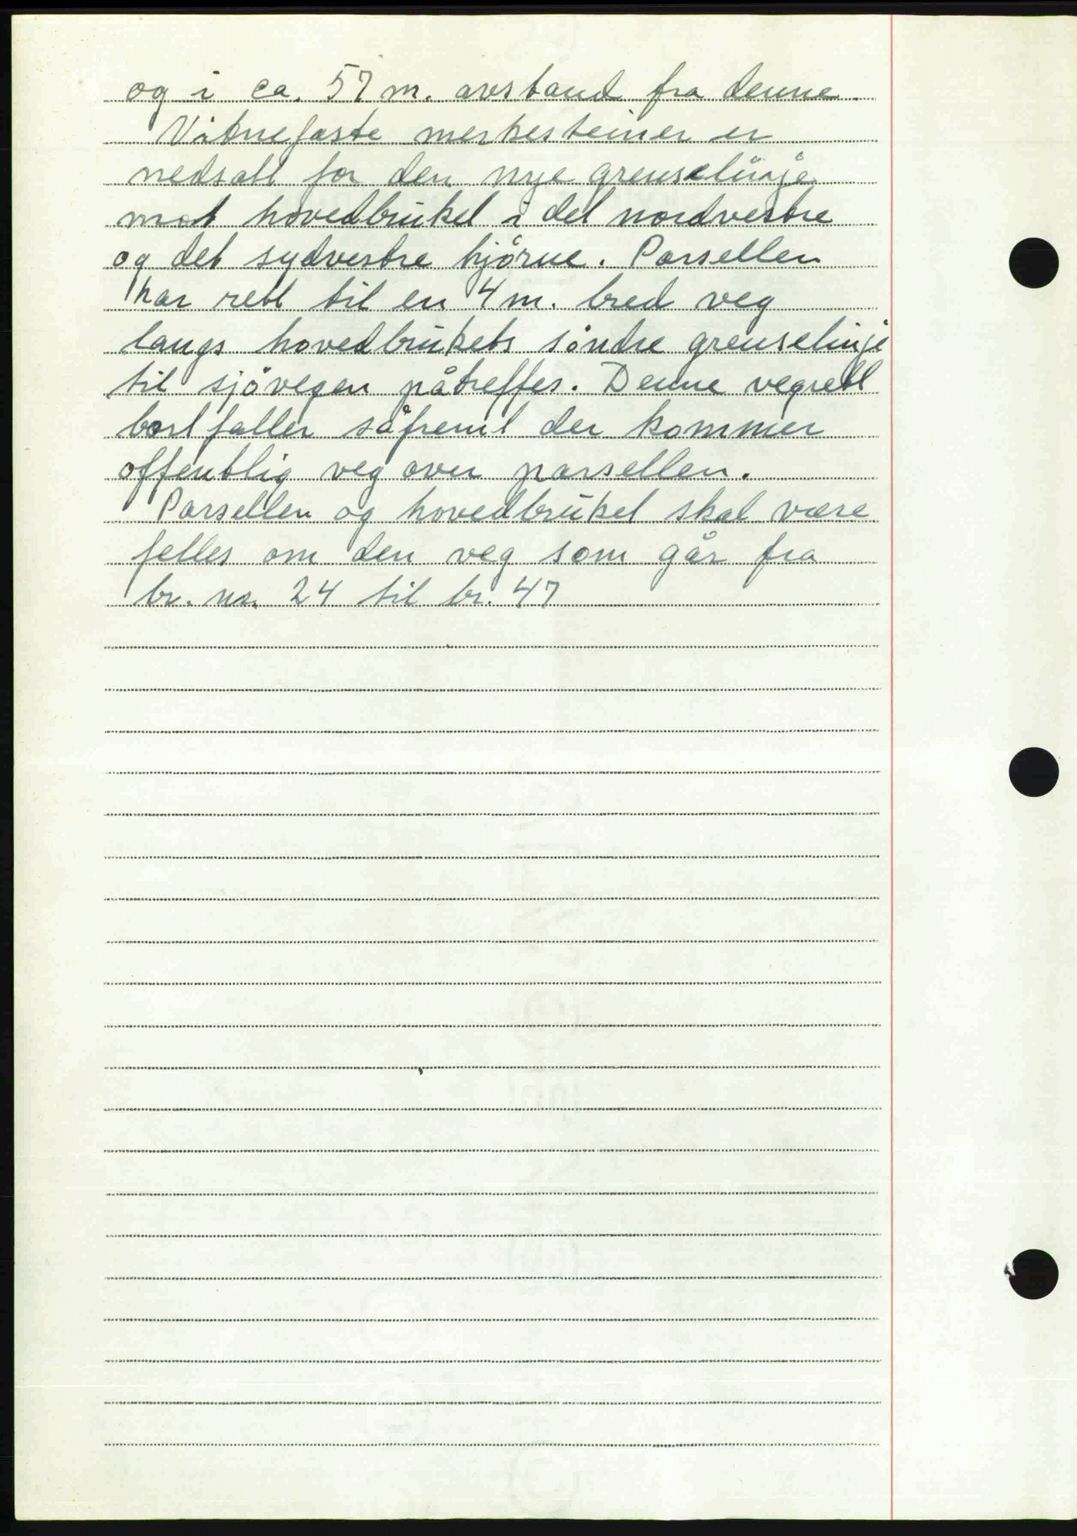 og i ca. 57 m. avstand fra denne.
Vitnefaste merkesteiner er
nedsatt for den nye grenselinje
mot hovedbruket i det nordvestre
og det sydvestre hjörne. Parsellen
har rett til en 4 m. bred veg
langs hovedbrukets söndre grenselinje
til sjövegen påtreffes. Denne vegrett
bortfaller såfremt der kommer
offentlig veg over parsellen.
Parsellen og hovedbruket skal være
felles om den veg som går fra
br. nr. 24 til br. 47